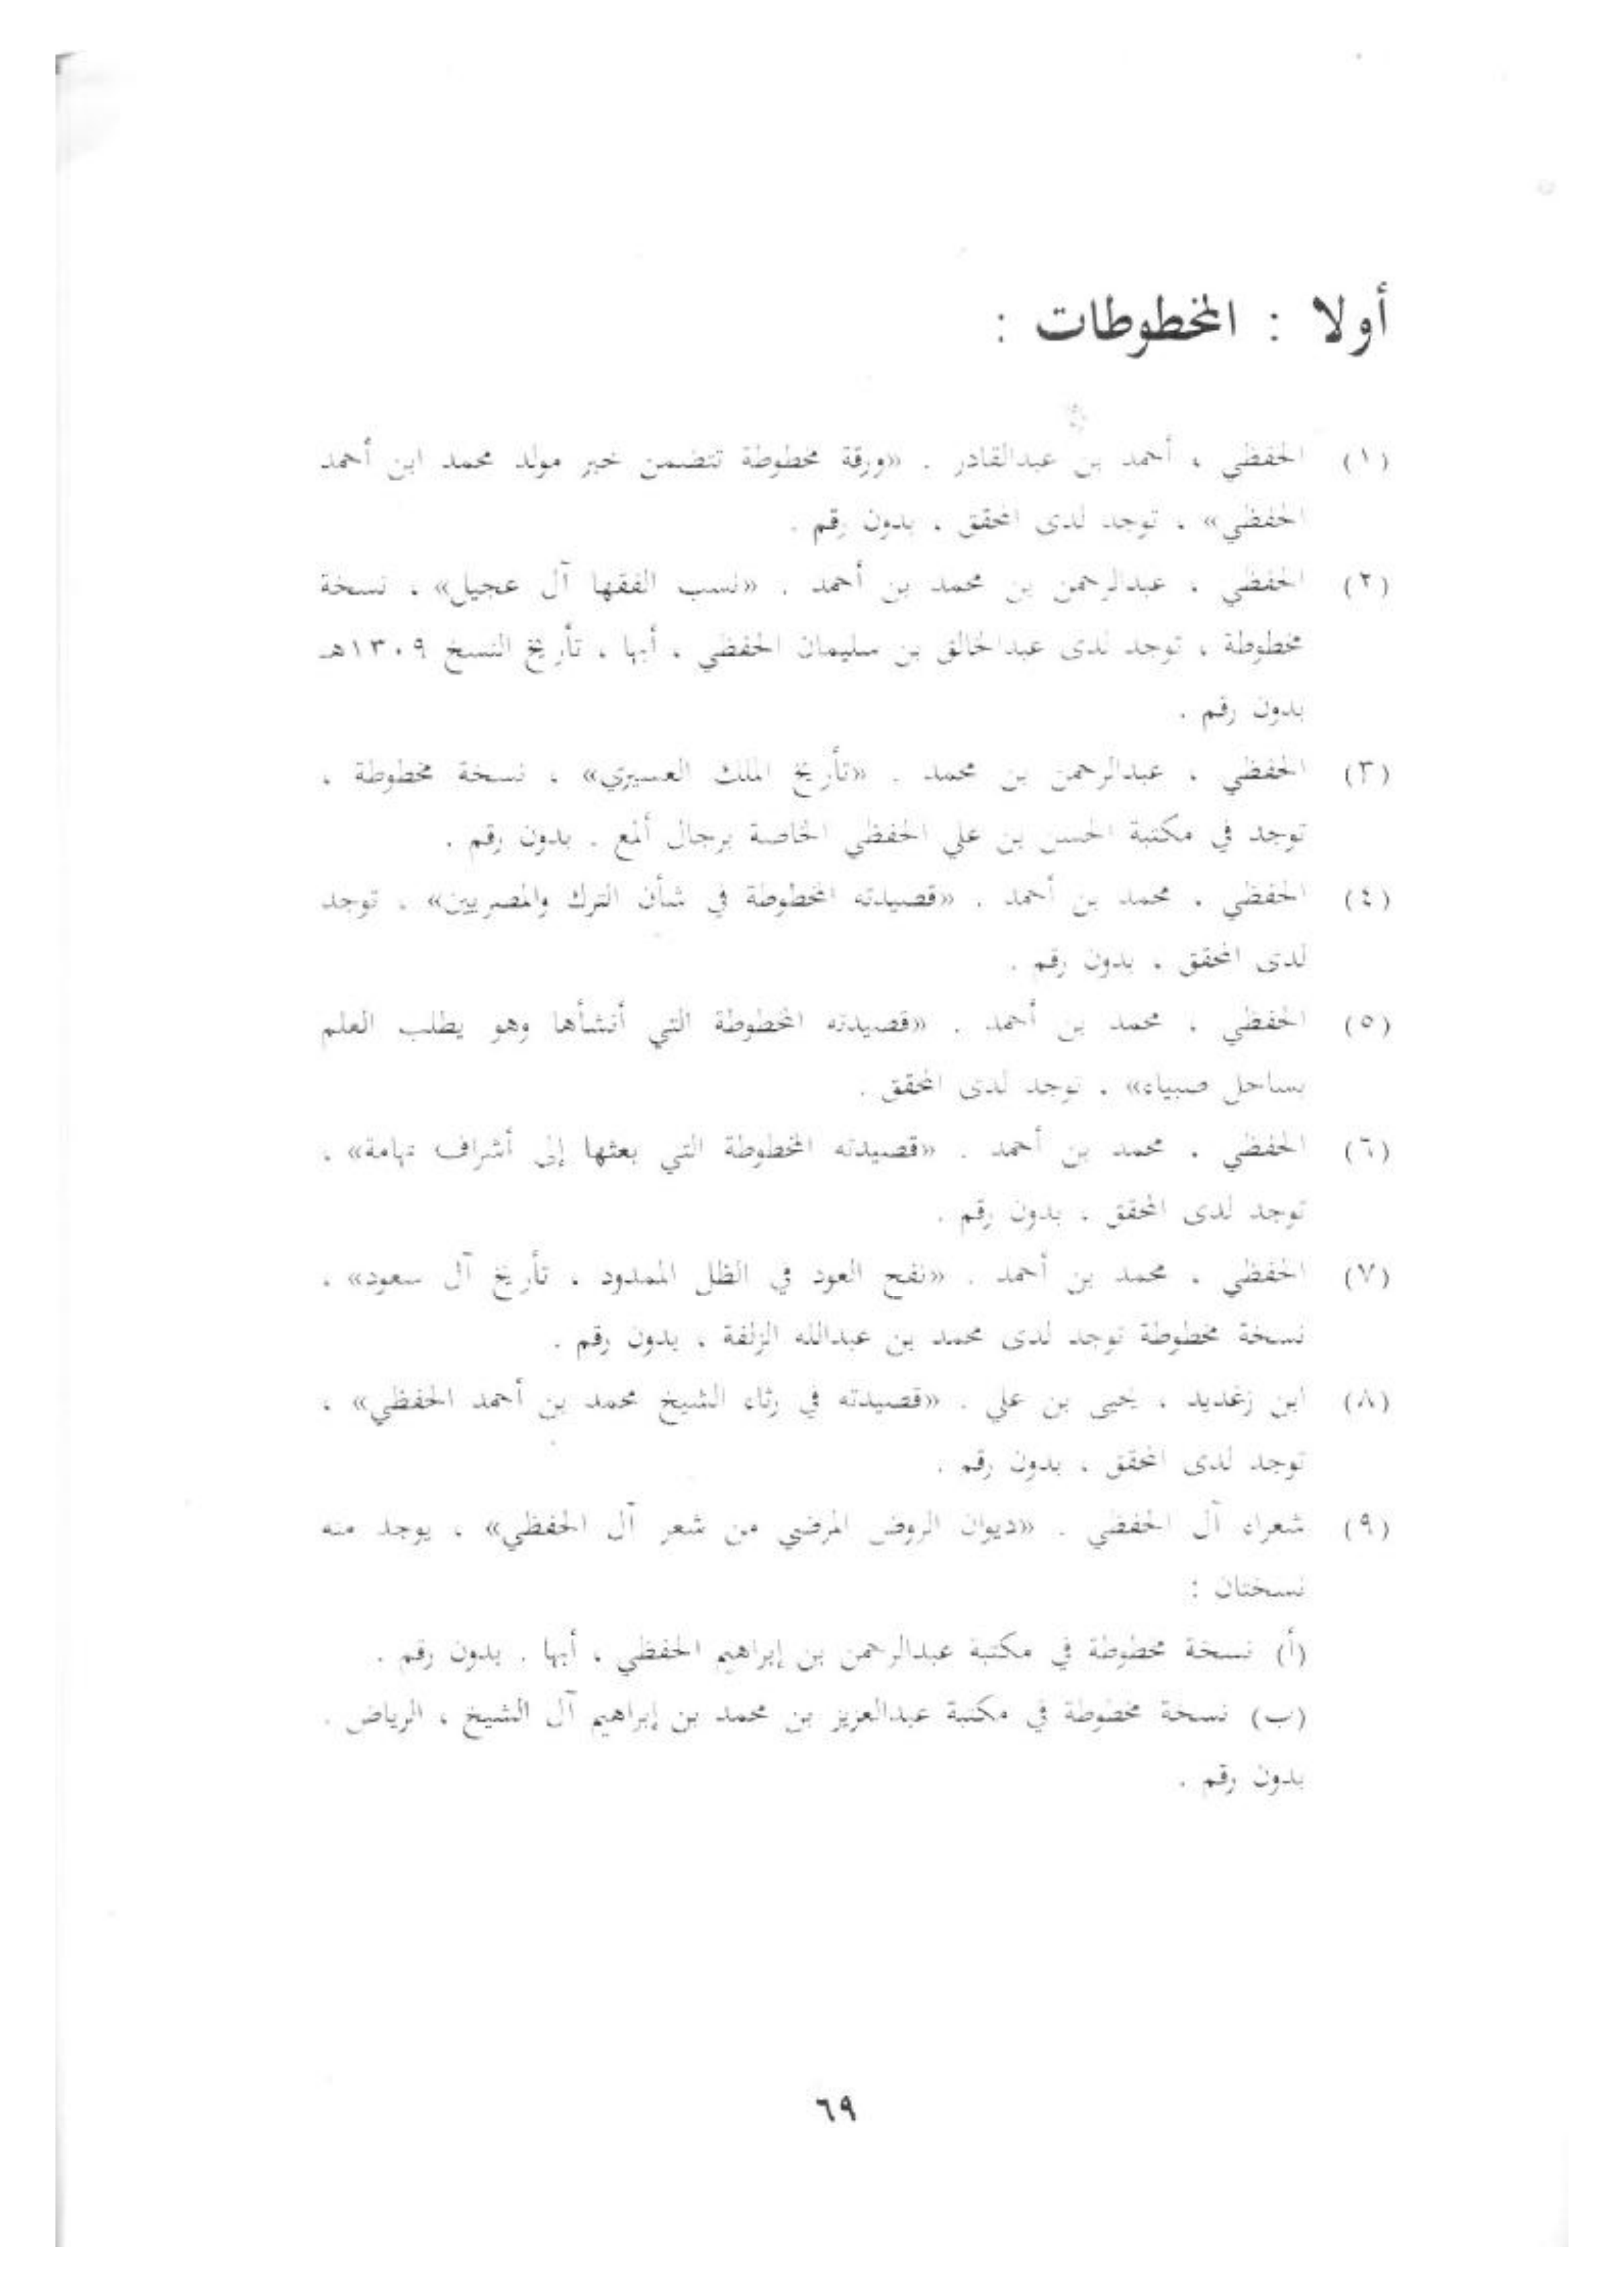 أولا : المخطوطات :
(١) الحفظي ، أحمد بن عبدالقادر . «ورقة مخطوطة تتضمن خبر مولد محمد ابن أحمد
الحفظي» ، توجد لدى المحقق ، بدون رقم .
(٢) الحفظي ، عبدالرحمن بن محمد بن أحمد . «نسب الفقها آل عجيل» ، نسخة
مخطوطة ، توجد لدى عبدالخالق بن سليمان الحفظي ، أبها ، تأريخ النسخ ١٣٠٩هـ
بدون رقم .
(٣) الحفظي ، عبدالرحمن بن محمد . «تأريخ الملك العسيري» ، نسخة مخطوطة ،
توجد في مكتبة الحسن بن علي الحفظي الخاصة برجال ألمع . بدون رقم .
(٤) الحفظي ، محمد بن أحمد . «قصيدته المخطوطة في شأن الترك والمصريين» ، توجد
لدى المحقق ، بدون رقم .
(٥) الحفظي ، محمد بن أحمد . «قصيدته المخطوطة التي أنشأها وهو يطلب العلم
بساحل صبياء» . توجد لدى المحقق .
(٦) الحفظي ، محمد بن أحمد . «قصيدته المخطوطة التي بعثها إلى أشراف تهامة» ،
توجد لدى المحقق ، بدون رقم .
(٧) الحفظي ، محمد بن أحمد . «نفح العود في الظل الممدود ، تأريخ آل سعود» ،
نسخة مخطوطة توجد لدى محمد بن عبدالله الزلفة ، بدون رقم .
(٨) ابن زغديد ، يحيى بن علي . «قصيدته في رثاء الشيخ محمد بن أحمد الحفظي» ،
توجد لدى المحقق ، بدون رقم .
(٩) شعراء آل الحفظي . «ديوان الروض المرضي من شعر آل الحفظي» ، يوجد منه
نسختان :
(أ) نسخة مخطوطة في مكتبة عبدالرحمن بن إبراهيم الحفظي ، أبها . بدون رقم .
(ب) نسخة مخطوطة في مكتبة عبدالعزيز بن محمد بن إبراهيم آل الشيخ ، الرياض .
بدون رقم .
٦٩